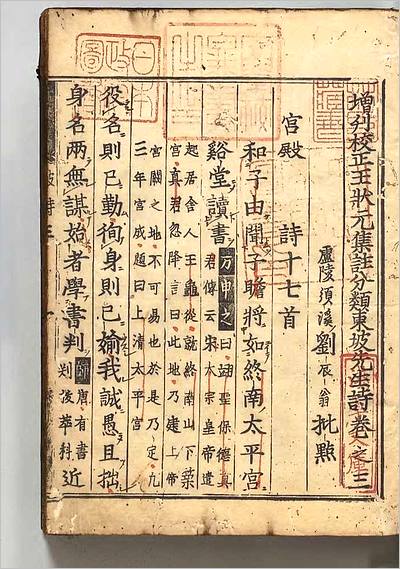 增刋校正王狀元集註分類東坡先生詩卷之三
廬陵須溪劉辰翁批點
宮殿 詩十七首
和子由聞子瞻將如終南太平宮
谿堂讀書
曰翊聖保德真
君傳云宋太宗皇帝遣
起居舍人王龜從就終南山下築
宮真君忽降言曰此地乃建上帝
宮闕之地不可易也於是乃定九
三年宮成題曰上清太平宮
役名則已勤徇身則已媮我誠愚且拙
身名兩無謀始者學書判 唐有書判後萃科 近
坡詩三
日本政圖